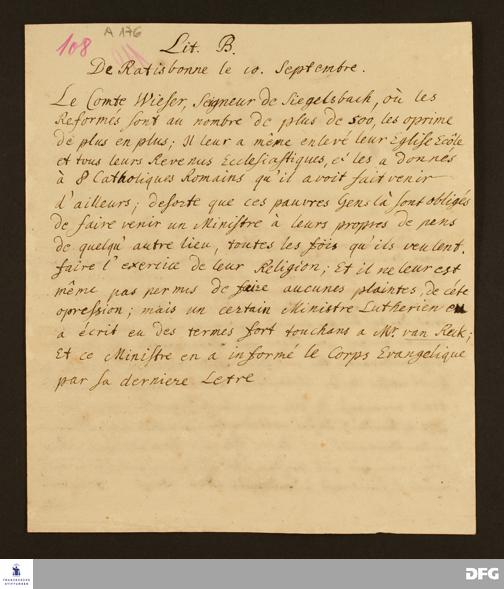 108 A 176
Lit. B.
De Ratisbonne le 10. Septembre.
Le Comte Wieser, Seigneur de Siegelsbach, où les
Reformés sont au nombre de plus de 500, les oprime
de plus en plus; Il leur a même enlevé leur Eglise Ecôle
et tous leurs Revenus Ecclesiastiques, et les a donnés
à 8 Catholiques Romains qu'il avoit fait venir
d'ailleurs; desorte que ces pauvres Gens là sont obligés
de faire venir un Ministre à leurs propres depens
de quelqu'autre lieu, toutes les fois qu'ils veulent
faire l'exercice de leur Religion; Et il ne leur est
même pas permis de faire aucunes plaintes, de céte
opression; mais un certain Ministre Lutherien en
a écrit en des termes fort touchans a Mr. van Reck;
Et ce Ministre en a informé le Corps Evangelique
par sa derniere Letre.
FRANCKESCHE
STIFTUNGEN
DFG